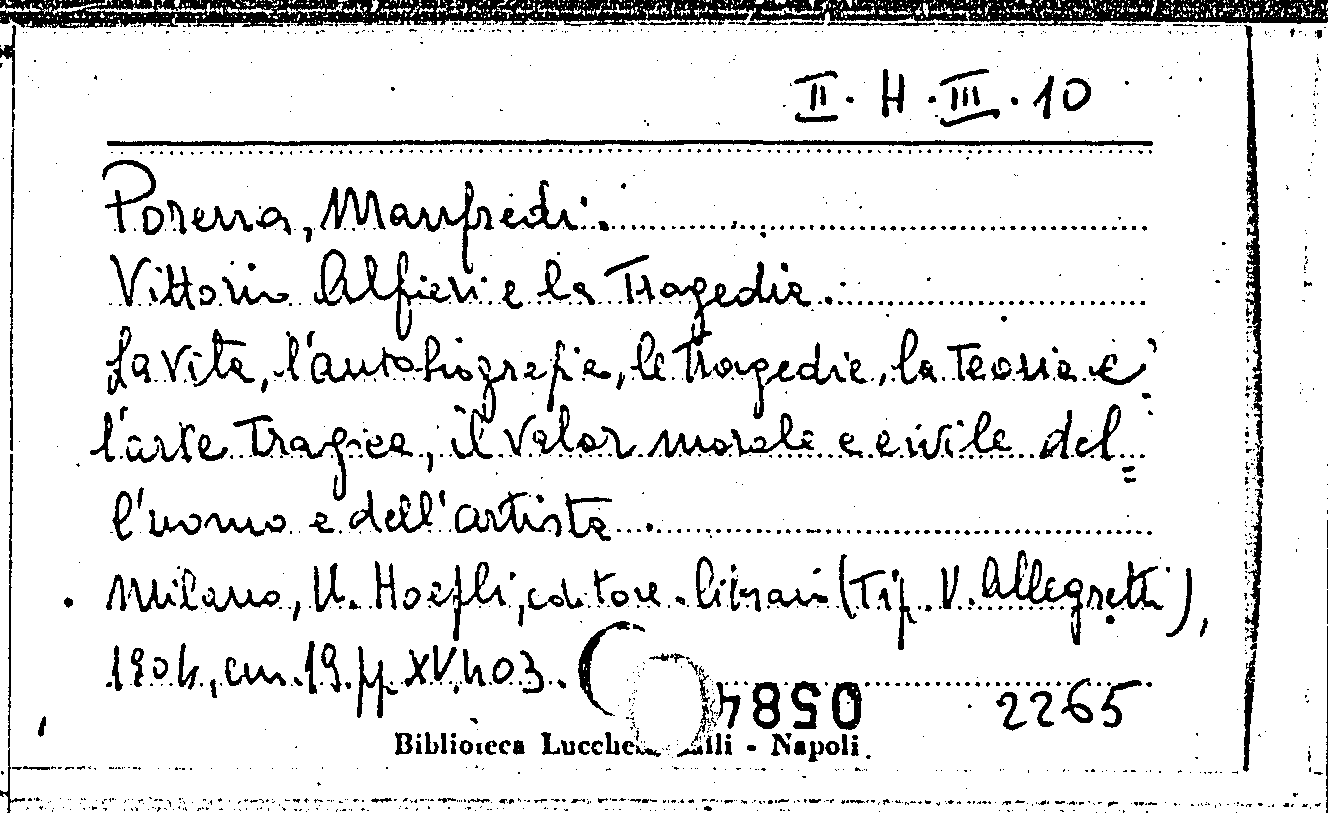 II. H. III. 10
Porena, Manfredi.
Vittorio Alfieri e la Tragedia.
La vita, l'autobiografia, le tragedie, la teoria e
l'arte tragica, il valor morale e civile del=
l'uomo e dell'artista.
Milano, U. Hoepli, editore-libraio (Tip. V. Allegretti),
1904, cm. 19. pp. XV, 403.
0584
2265
Biblioteca - Napoli